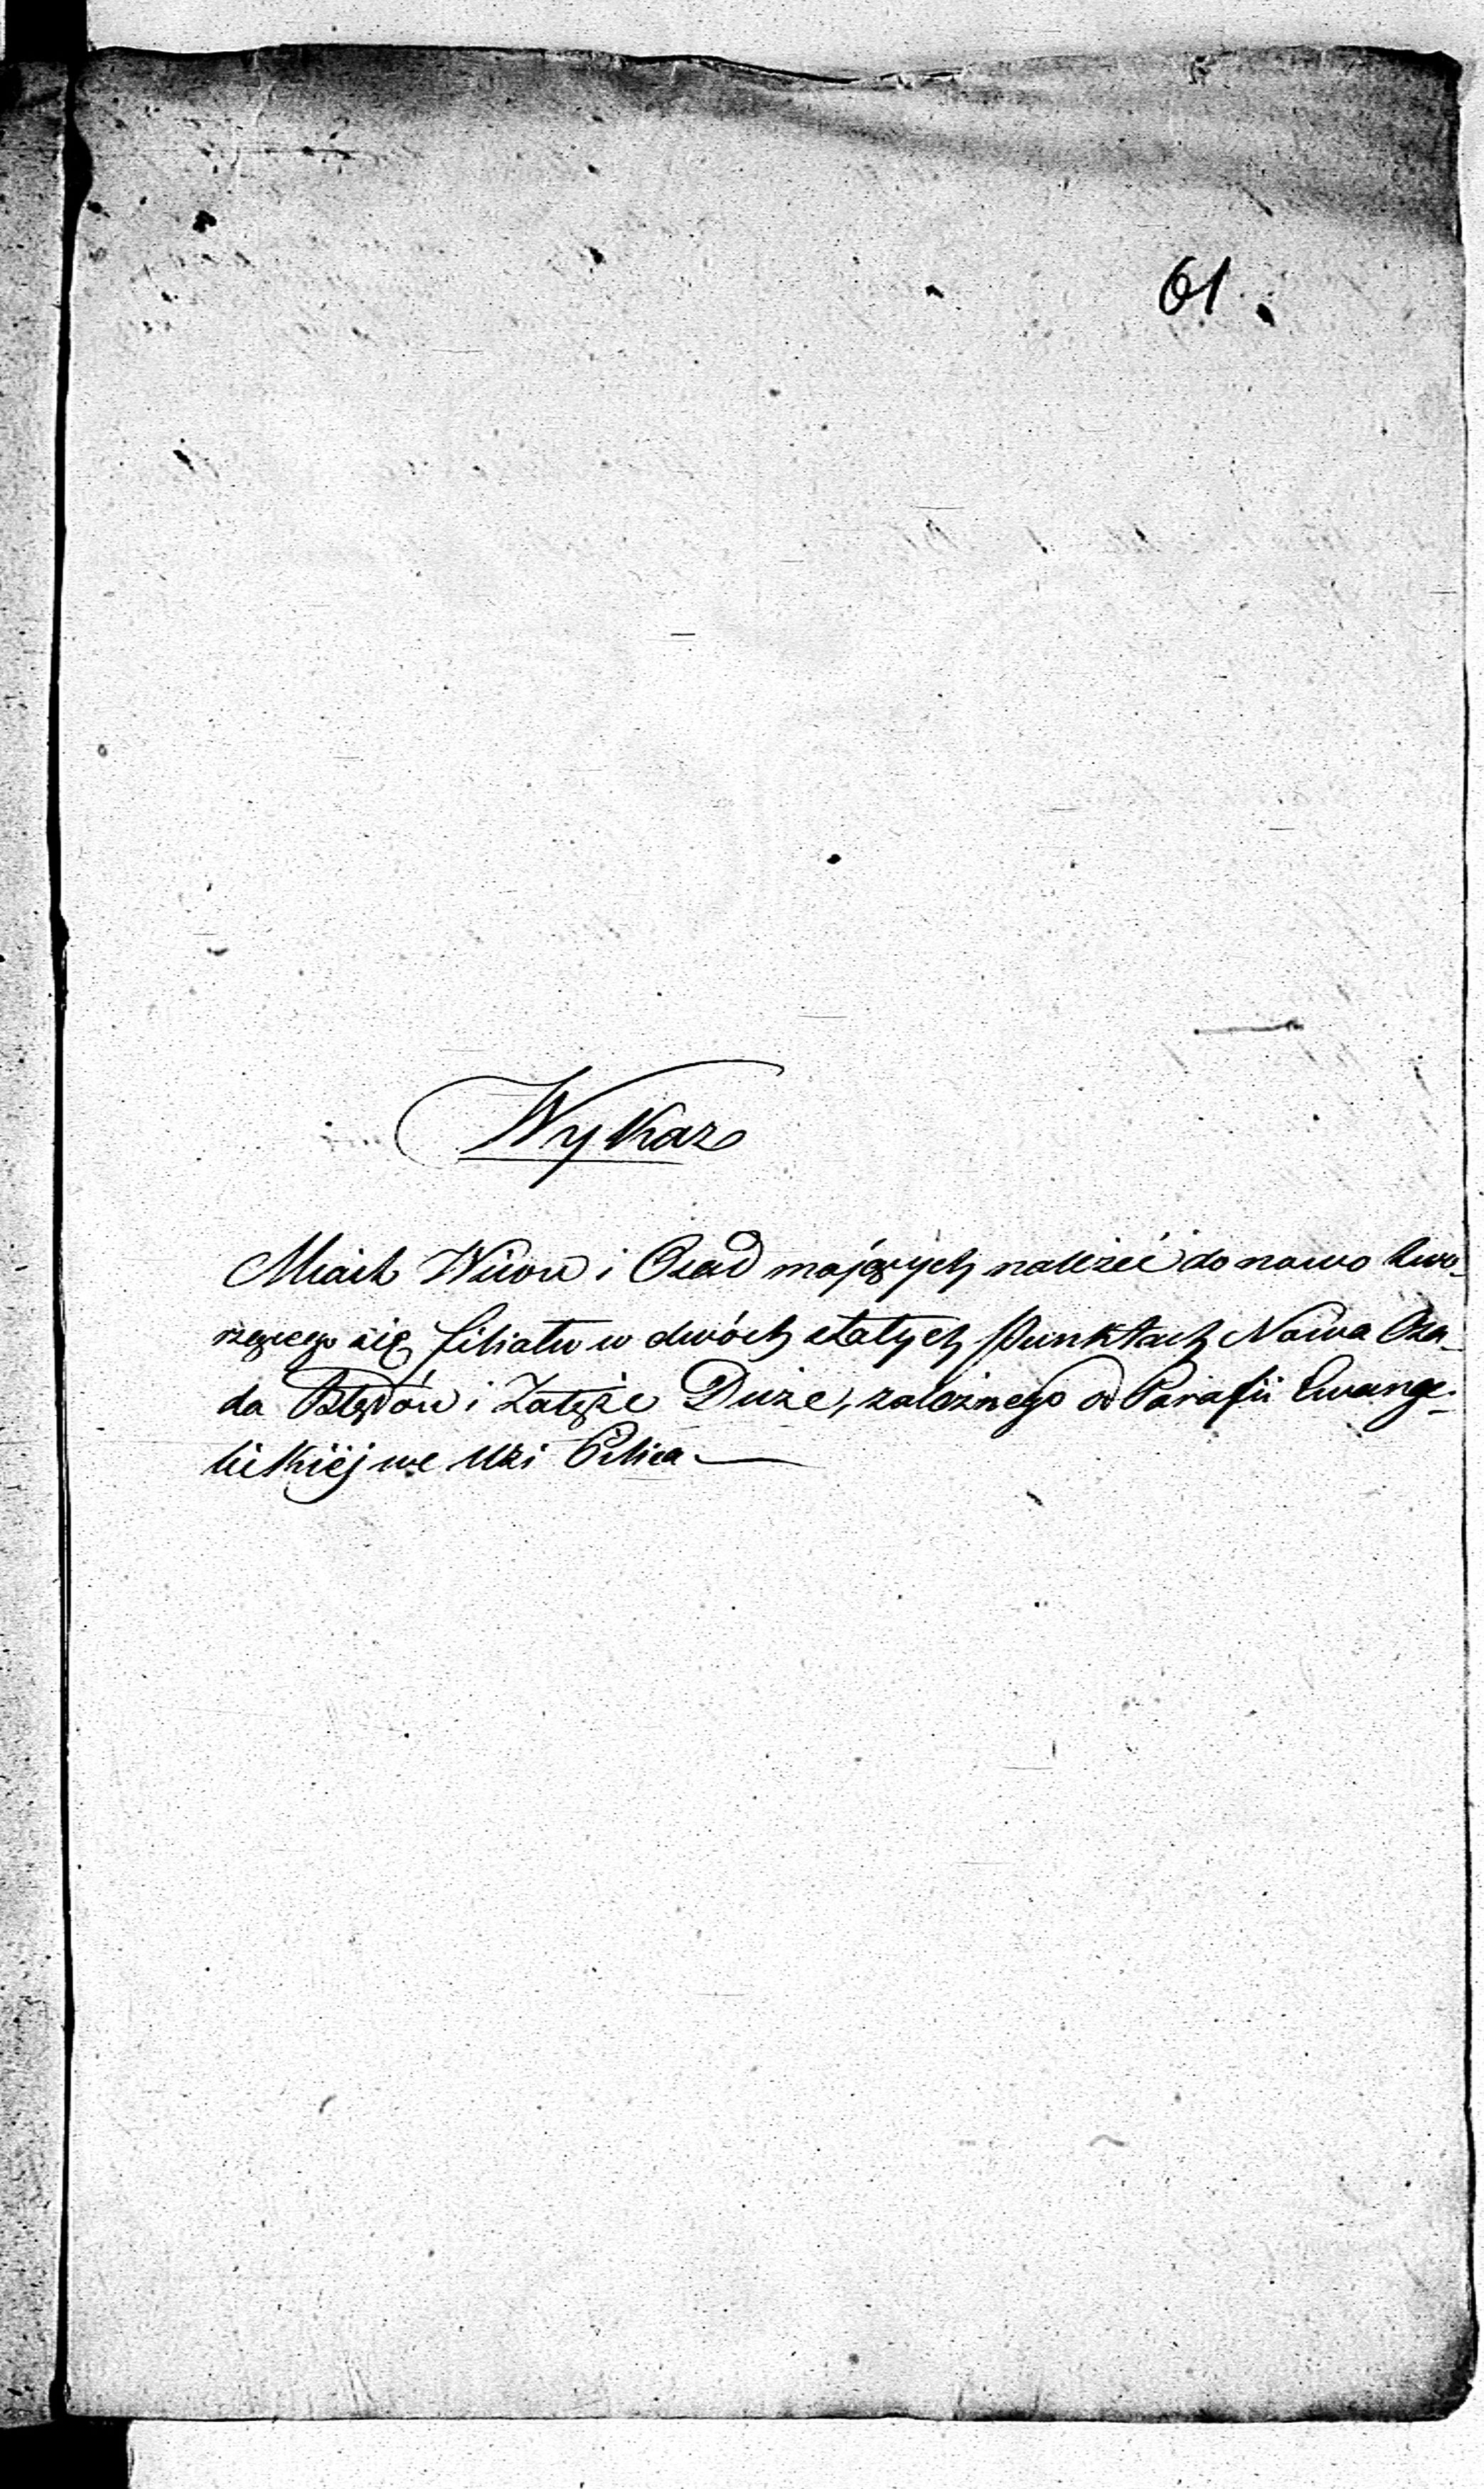 61.
Wykaz
Miast Wiosn i Osad mających należeć do nowo two-
rzącego się filiału w dwóch stałych punktach Nowa Osa-
da Błędów i Załęże Duże, zależnego od Parafii Ewange-
lickiéj we Wsi Pilica